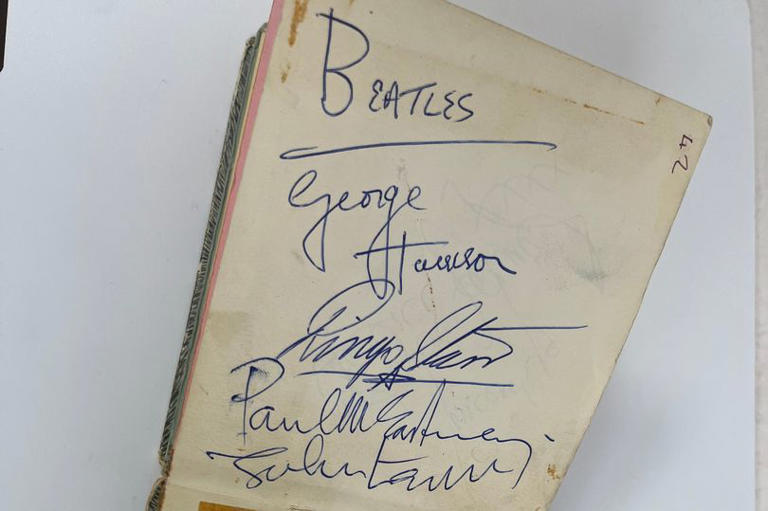 BEATLES
George
Harrison
Ringo Starr
Paul McCartney
John Lennon
42